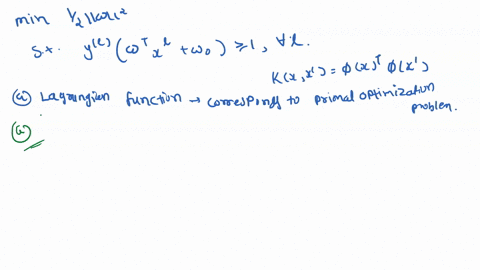 min 1/2 ||ω||²
s.t. y^(l) (ω^T x^l + ω₀) ≥ 1, ∀ l.
K(x, x') = φ(x)^T φ(x')
(a) Lagrangian function → corresponds to primal optimization
problem.
(a)